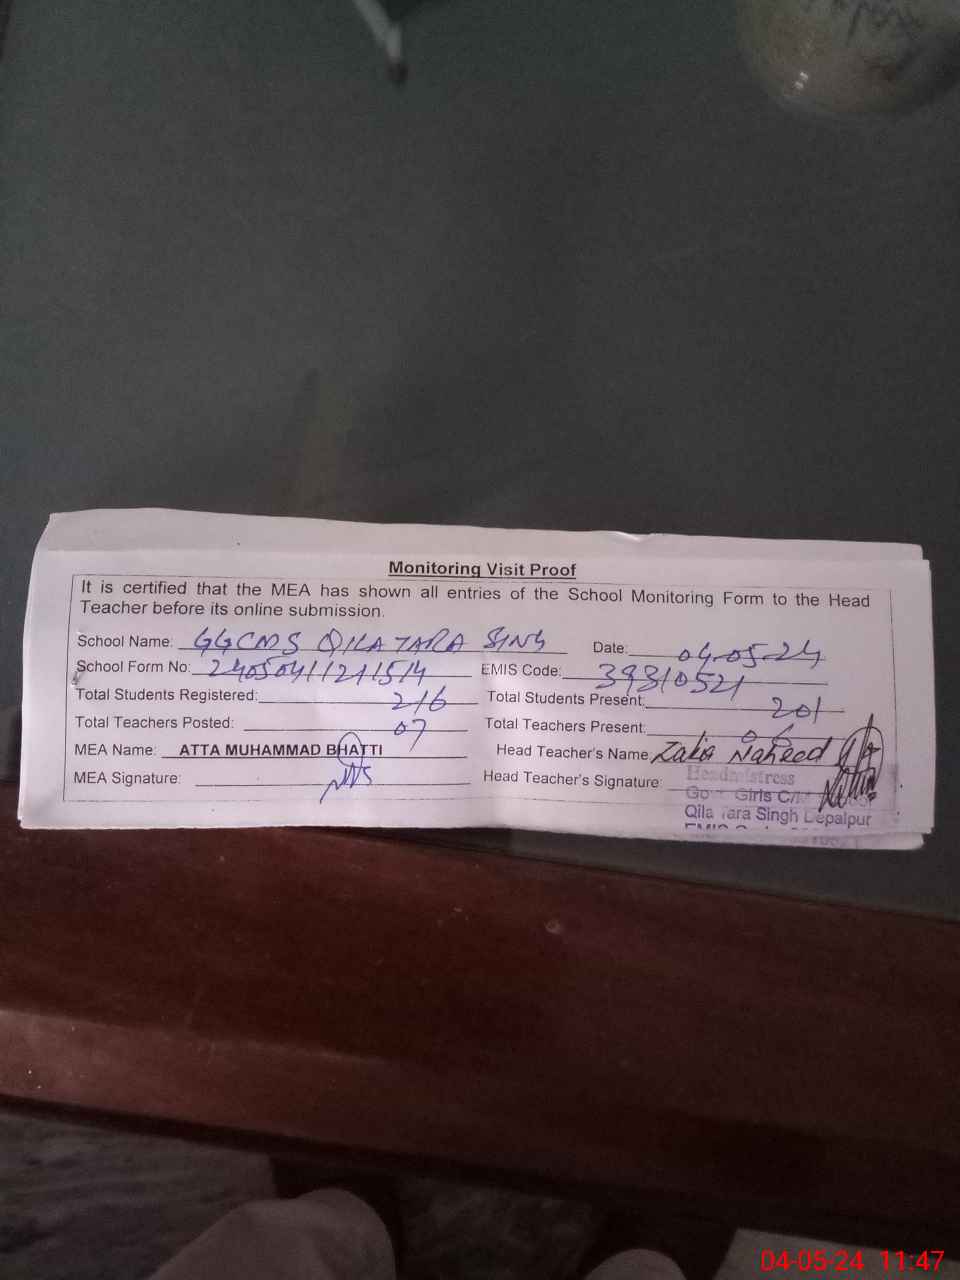 Monitoring Visit Proof
It is certified that the MEA has shown all entries of the School Monitoring Form to the Head
Teacher before its online submission.
School Name: GGCMS QILA TARA SING Date: 04-05-24
School Form No: EMIS Code: 39310521
Total Students Registered: 216 Total Students Present: 201
Total Teachers Posted: 07 Total Teachers Present: 06
MEA Name: ATTA MUHAMMAD BHATTI Head Teacher's Name Zakia Naheed
MEA Signature: Head Teacher's Signature:
Headmistress
Govt Girls
Qila Tara Singh Depalpur
EMIS Code
04-05-24 11:47